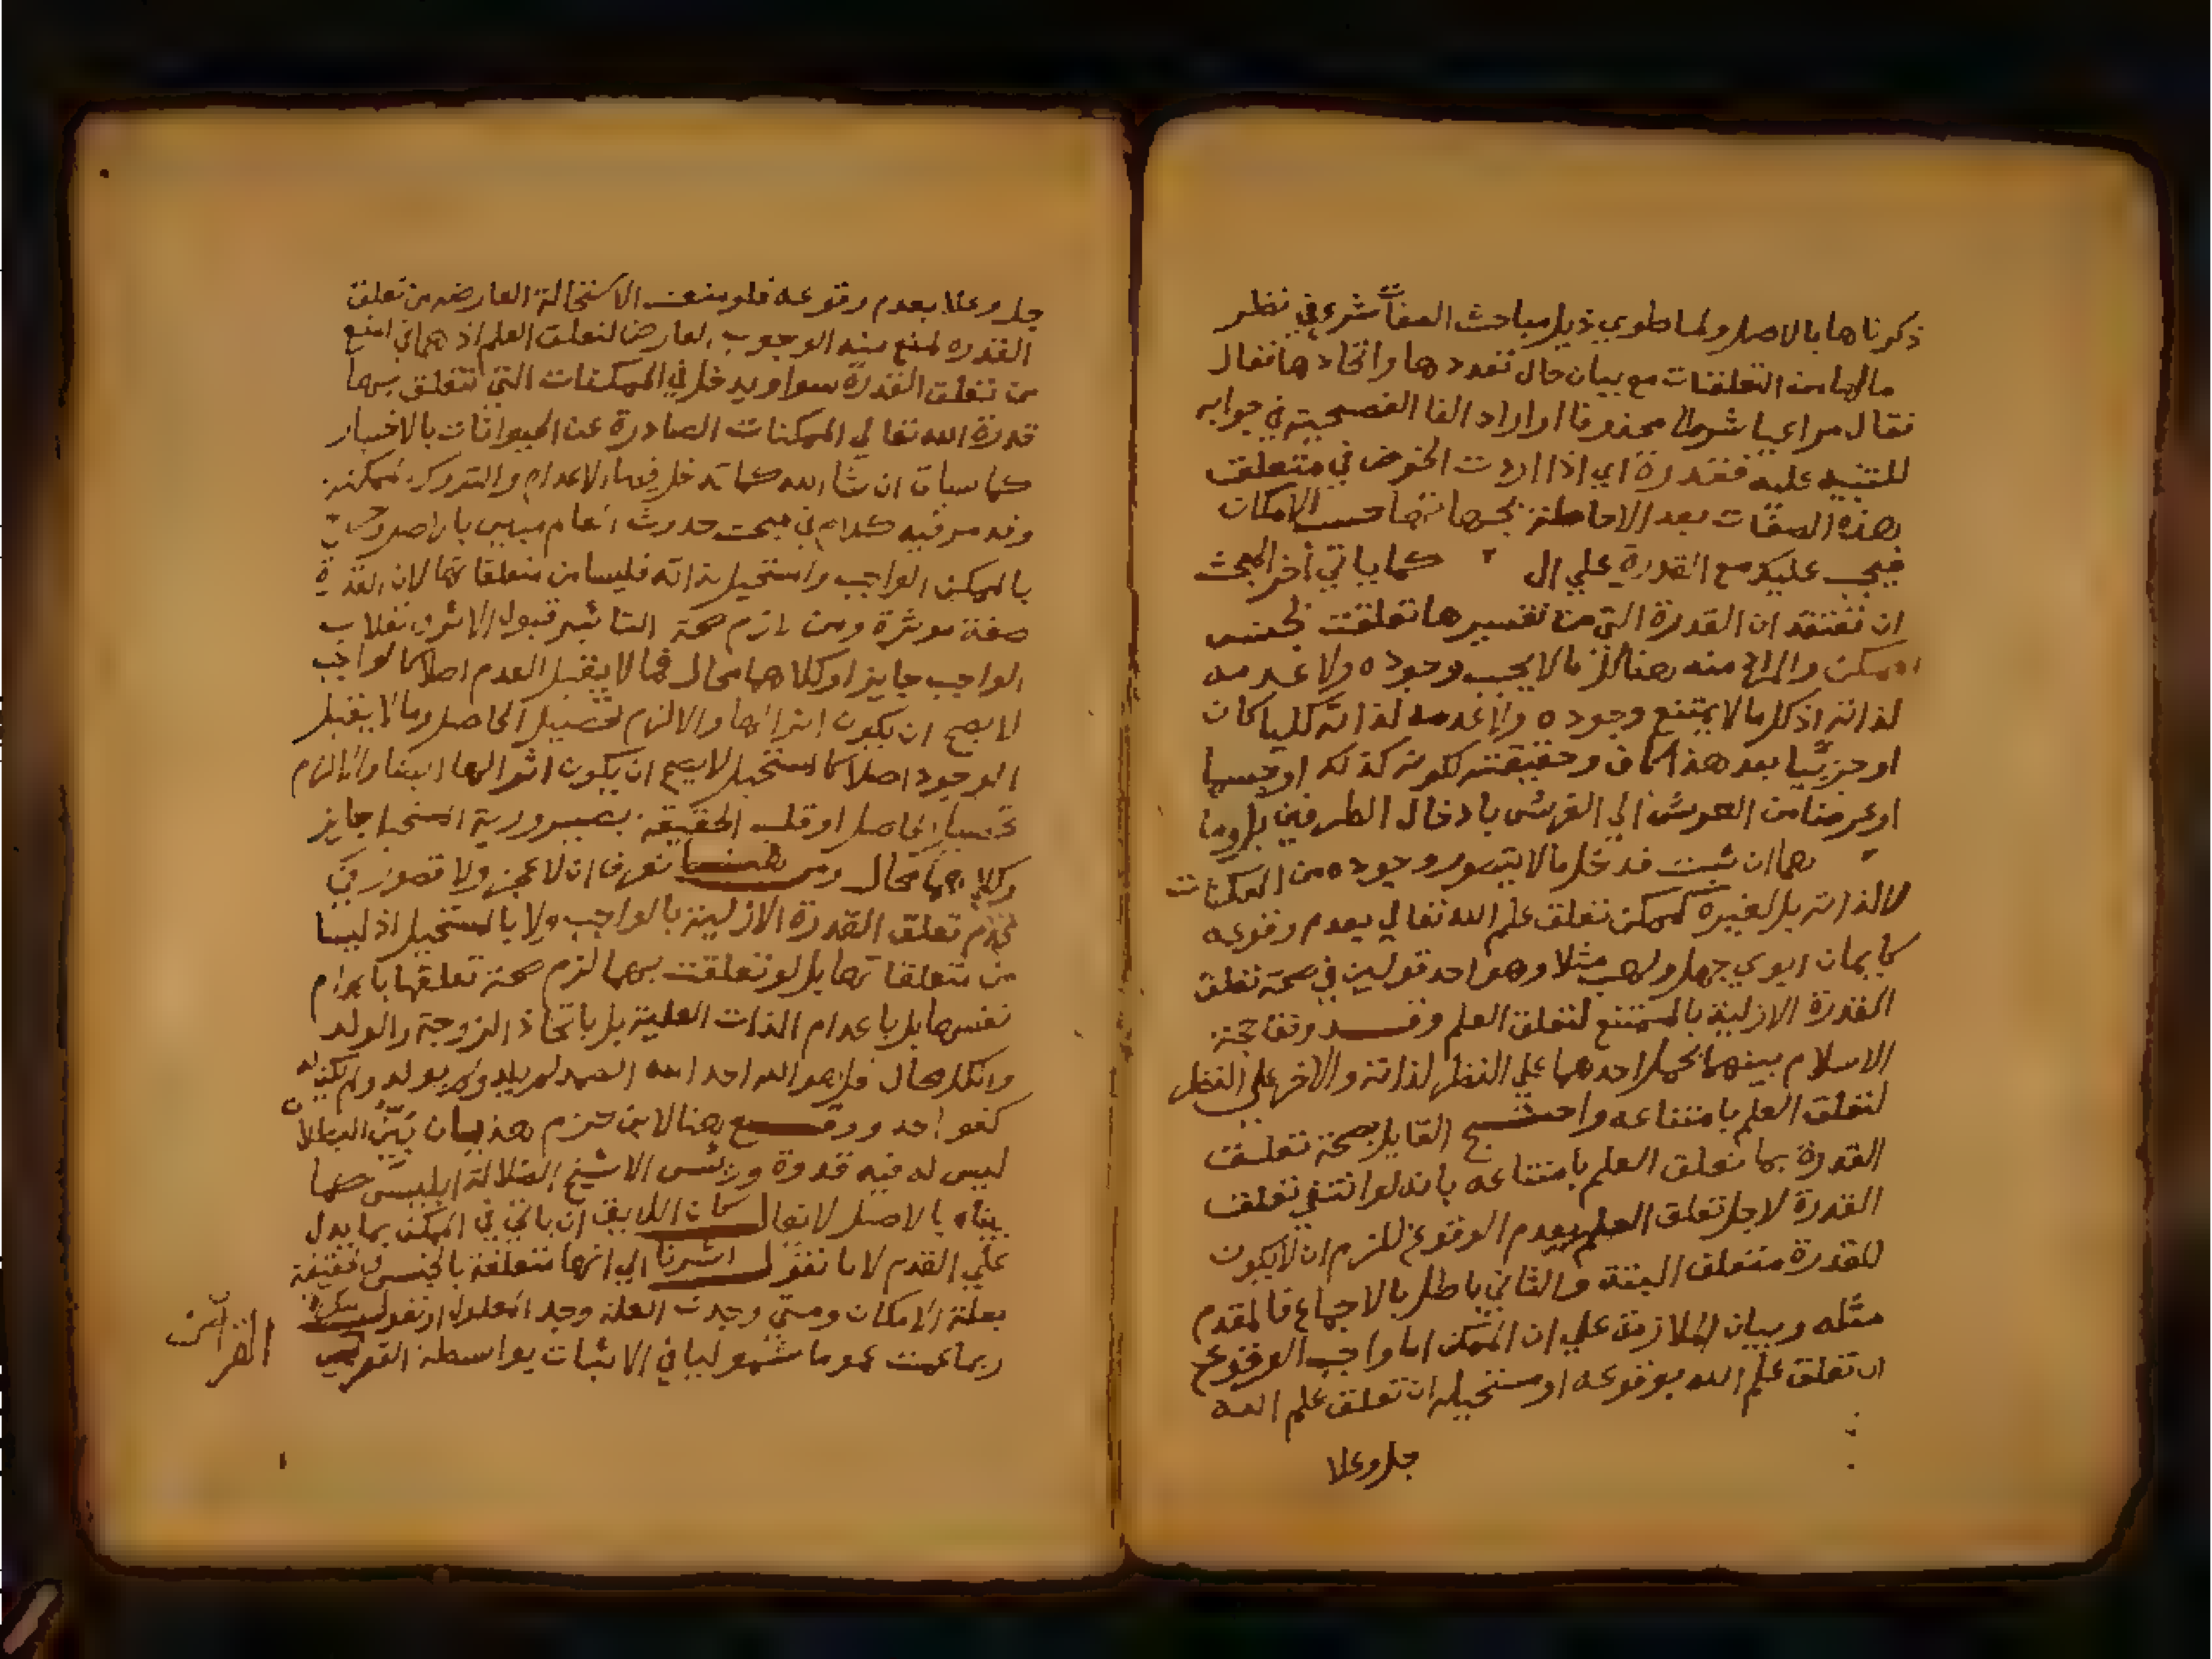 ذكرناها بالاصل ولما طوي ذيل مباحث الصفات شرع في نظر
ما لها من التعلقات مع بيان حال تعددها واتحادها فقال
فقال مراعيا شرطا محذوفا او اراد الفا الفصيحية في جوابه
للتنبيه عليه فقدرة اي اذا اردت الخوض في متعلقت
بهذه الصفات بعد الاحاطة بجهاتها حسب الامكان
فيجب عليك مع القدرة علي ال كما ياتي اخر المبحث
ان تعتقد ان القدرة التي من تفسيرها تعلقت بجنس
الممكن والمراد منه هنا كل ما لا يجب وجوده ولا عدمه
لذاته اذ كل ما لا يمتنع وجوده ولا عدمه لذاته كليا كان
او جزئيا بعد هذا كان وحقيقته لكونه كذلك او جسما
او عرضا من العرش الي الفرش بادخال الطرفين بل وما
هما ان شيت فدخل ما لا يتصور وجوده من الممكنات
لا لذاته بل لغيره كممكن تعلق علم الله تعالي بعدم وقوعه
كايمان ابوي جهل ولهب مثلا وهو احد قولين في صحة تعلق
القدرة الازلية بالممتنع لتعلق العلم وقد وفق حجة
الاسلام بينهما بحمل احدهما علي النظر لذاته والاخر علي النظر
لتعلق العلم بامتناعه واحتج القايل بصحة تعلقت
القدرة بما تعلق العلم بامتناعه بانه لو انتفي تعلقت
القدرة لاجل تعلق العلم بعدم الوقوع للزم ان لا يكون
للقدرة متعلق البتة والثاني باطل بالاجماع فالمقدم
مثله وبيان الملازمة علي ان الممكن اما واجب الوقوع
ان تعلق علم الله بوقوعه او مستحيله ان تعلق علم الله
جل وعلا
جل وعلا بعدم وقوعه فلو منعت الاستحالة العارضه من تعلق
القدره لمنع منه الوجوب العارض لتعلق العلم اذ هما في المنع
من تعلق القدرة سوا ويدخل في الممكنات التي تتعلق بها
قدرة الله تعالي الممكنات الصادرة عن الحيوانات بالاختيار
كما سياتي ان شا الله كما تدخل فيها الاعدام والتروك ممكنة
وقد مر فيه كلام في مبحث حدوث العالم مبين بالاصل وخرج
بالممكن الواجب والمستحيل لذاته فليسا من متعلقاتها لان القدرة
صفة موثرة ومن لازم صحة التاثير قبول الاثر وانقلاب
الواجب جايز او كلاهما محال فما لا يقبل العدم اصلا كالواجب
لا يصح ان يكون اثرا لها والا لزم تحصيل الحاصل وما لا يقبل
الوجود اصلا كالمستحيل لا يصح ان يكون اثرا لها ايضا والا لزم
تحصيل الحاصل او قلب الحقيقة بصيرورية المستحيل جايز
وكلاهما محال ومن ههنا تعرف ان لا عجز ولا قصور في
عدم تعلق القدرة الازلية بالواجب ولا بالمستحيل اذ ليسا
من متعلقاتها بل لو تعلقت بهما لزم صحة تعلقها باعدام
نفسها بل باعدام الذات العلية بل باتخاذ الزوجة والولد
والكل محال قل هو الله احد الله الصمد لم يلد ولم يولد ولم يكن له
كفوا احد ووقع هنا لابن حزم هذيان بين البطلان
ليس له فيه قدوة ورئس الا شيخ الضلالة ابليس كما
بيناه بالاصل لا يقال كان اللايق ان ياتي في الممكن بما يدل
علي القدم لانا نقول اشرنا الي انها متعلقة بالجنس
بعلة الامكان ومتي وجدت العلة وجد المعلول او نقول
ربما عمت عموما شموليا في الاثبات بواسطة
القراين